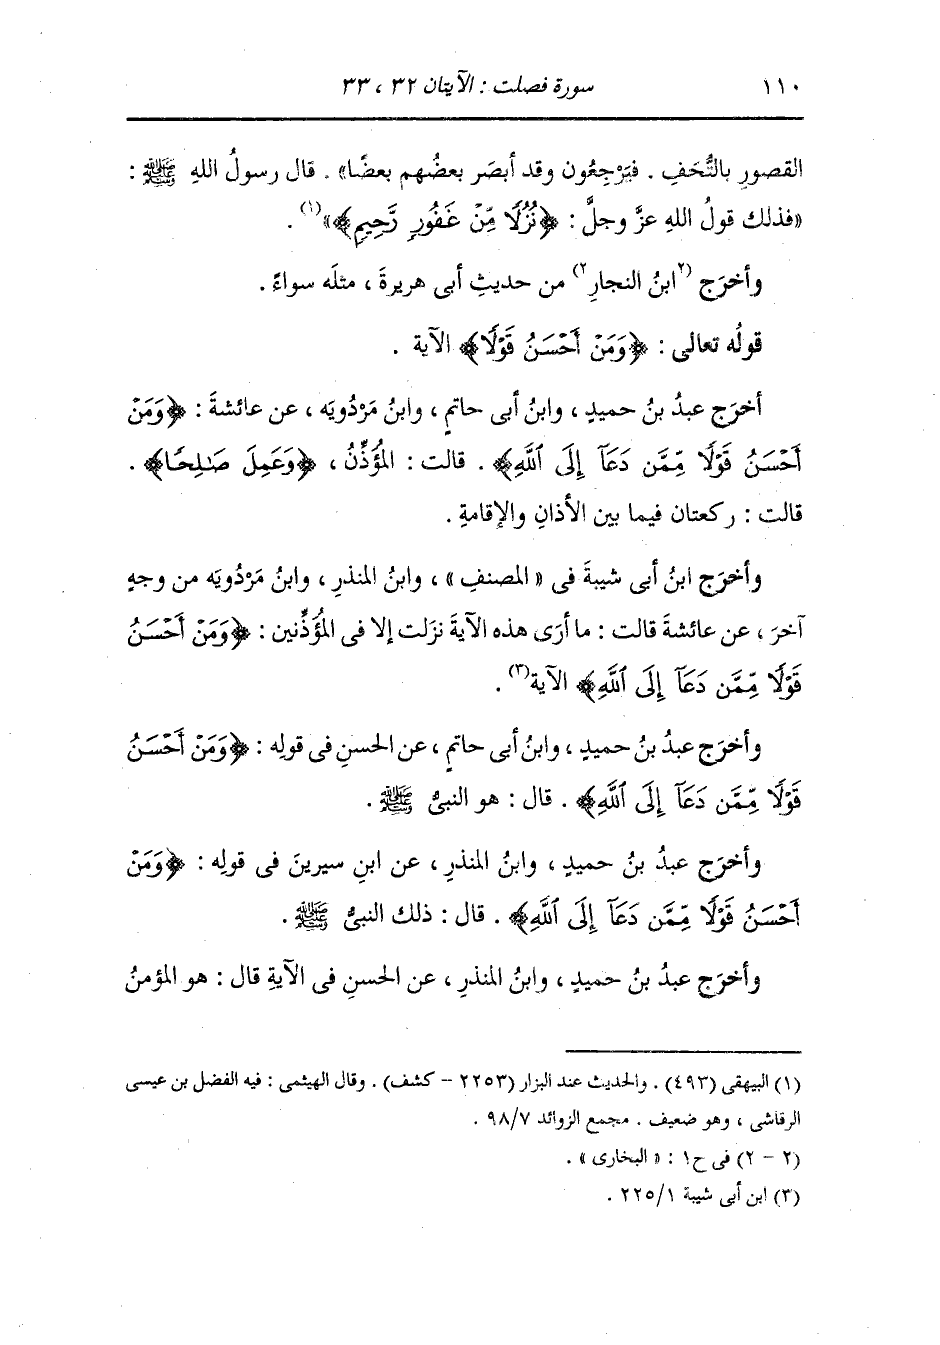 ١١٠ سورة فصلت : الآيتان ٣٢ ، ٣٣
القصورِ بالتُّحَفِ . فيَرْجِعُون وقد أبصَر بعضُهم بعضًا» . قال رسولُ اللهِ ﷺ :
«فذلك قولُ اللهِ عزَّ وجلَّ : ﴿نُزُلًا مِّنْ غَفُورٍ رَّحِيمٍ﴾»(١) .
وأخرَج (٢ابنُ النجارِ٢) من حديثِ أبى هريرةَ ، مثلَه سواءً .
قولُه تعالى : ﴿وَمَنْ أَحْسَنُ قَوْلًا﴾ الآية .
أخرَج عبدُ بنُ حميدٍ ، وابنُ أبى حاتمٍ ، وابنُ مَرْدُويَه ، عن عائشةَ : ﴿وَمَنْ
أَحْسَنُ قَوْلًا مِّمَّن دَعَآ إِلَى ٱللَّهِ﴾ . قالت : المُؤَذِّنُ ، ﴿وَعَمِلَ صَٰلِحًا﴾ .
قالت : ركعتان فيما بين الأذانِ والإقامةِ .
وأخرَج ابنُ أبى شيبةَ فى « المصنفِ » ، وابنُ المنذرِ ، وابنُ مَرْدُويَه من وجهٍ
آخرَ ، عن عائشةَ قالت : ما أرَى هذه الآيةَ نزَلت إلا فى المُؤَذِّنين : ﴿وَمَنْ أَحْسَنُ
قَوْلًا مِّمَّن دَعَآ إِلَى ٱللَّهِ﴾ الآية(٣) .
وأخرَج عبدُ بنُ حميدٍ ، وابنُ أبى حاتمٍ ، عن الحسنِ فى قولِه : ﴿وَمَنْ أَحْسَنُ
قَوْلًا مِّمَّن دَعَآ إِلَى ٱللَّهِ﴾ . قال : هو النبىُّ ﷺ .
وأخرَج عبدُ بنُ حميدٍ ، وابنُ المنذرِ ، عن ابنِ سيرينَ فى قولِه : ﴿وَمَنْ
أَحْسَنُ قَوْلًا مِّمَّن دَعَآ إِلَى ٱللَّهِ﴾ . قال : ذلك النبىُّ ﷺ .
وأخرَج عبدُ بنُ حميدٍ ، وابنُ المنذرِ ، عن الحسنِ فى الآيةِ قال : هو المؤمنُ
(١) البيهقى (٤٩٣) . والحديث عند البزار (٢٢٥٣ - كشف) . وقال الهيثمى : فيه الفضل بن عيسى
الرقاشى ، وهو ضعيف . مجمع الزوائد ٩٨/٧ .
(٢ - ٢) فى ح١ : « البخارى » .
(٣) ابن أبى شيبة ٢٢٥/١ .